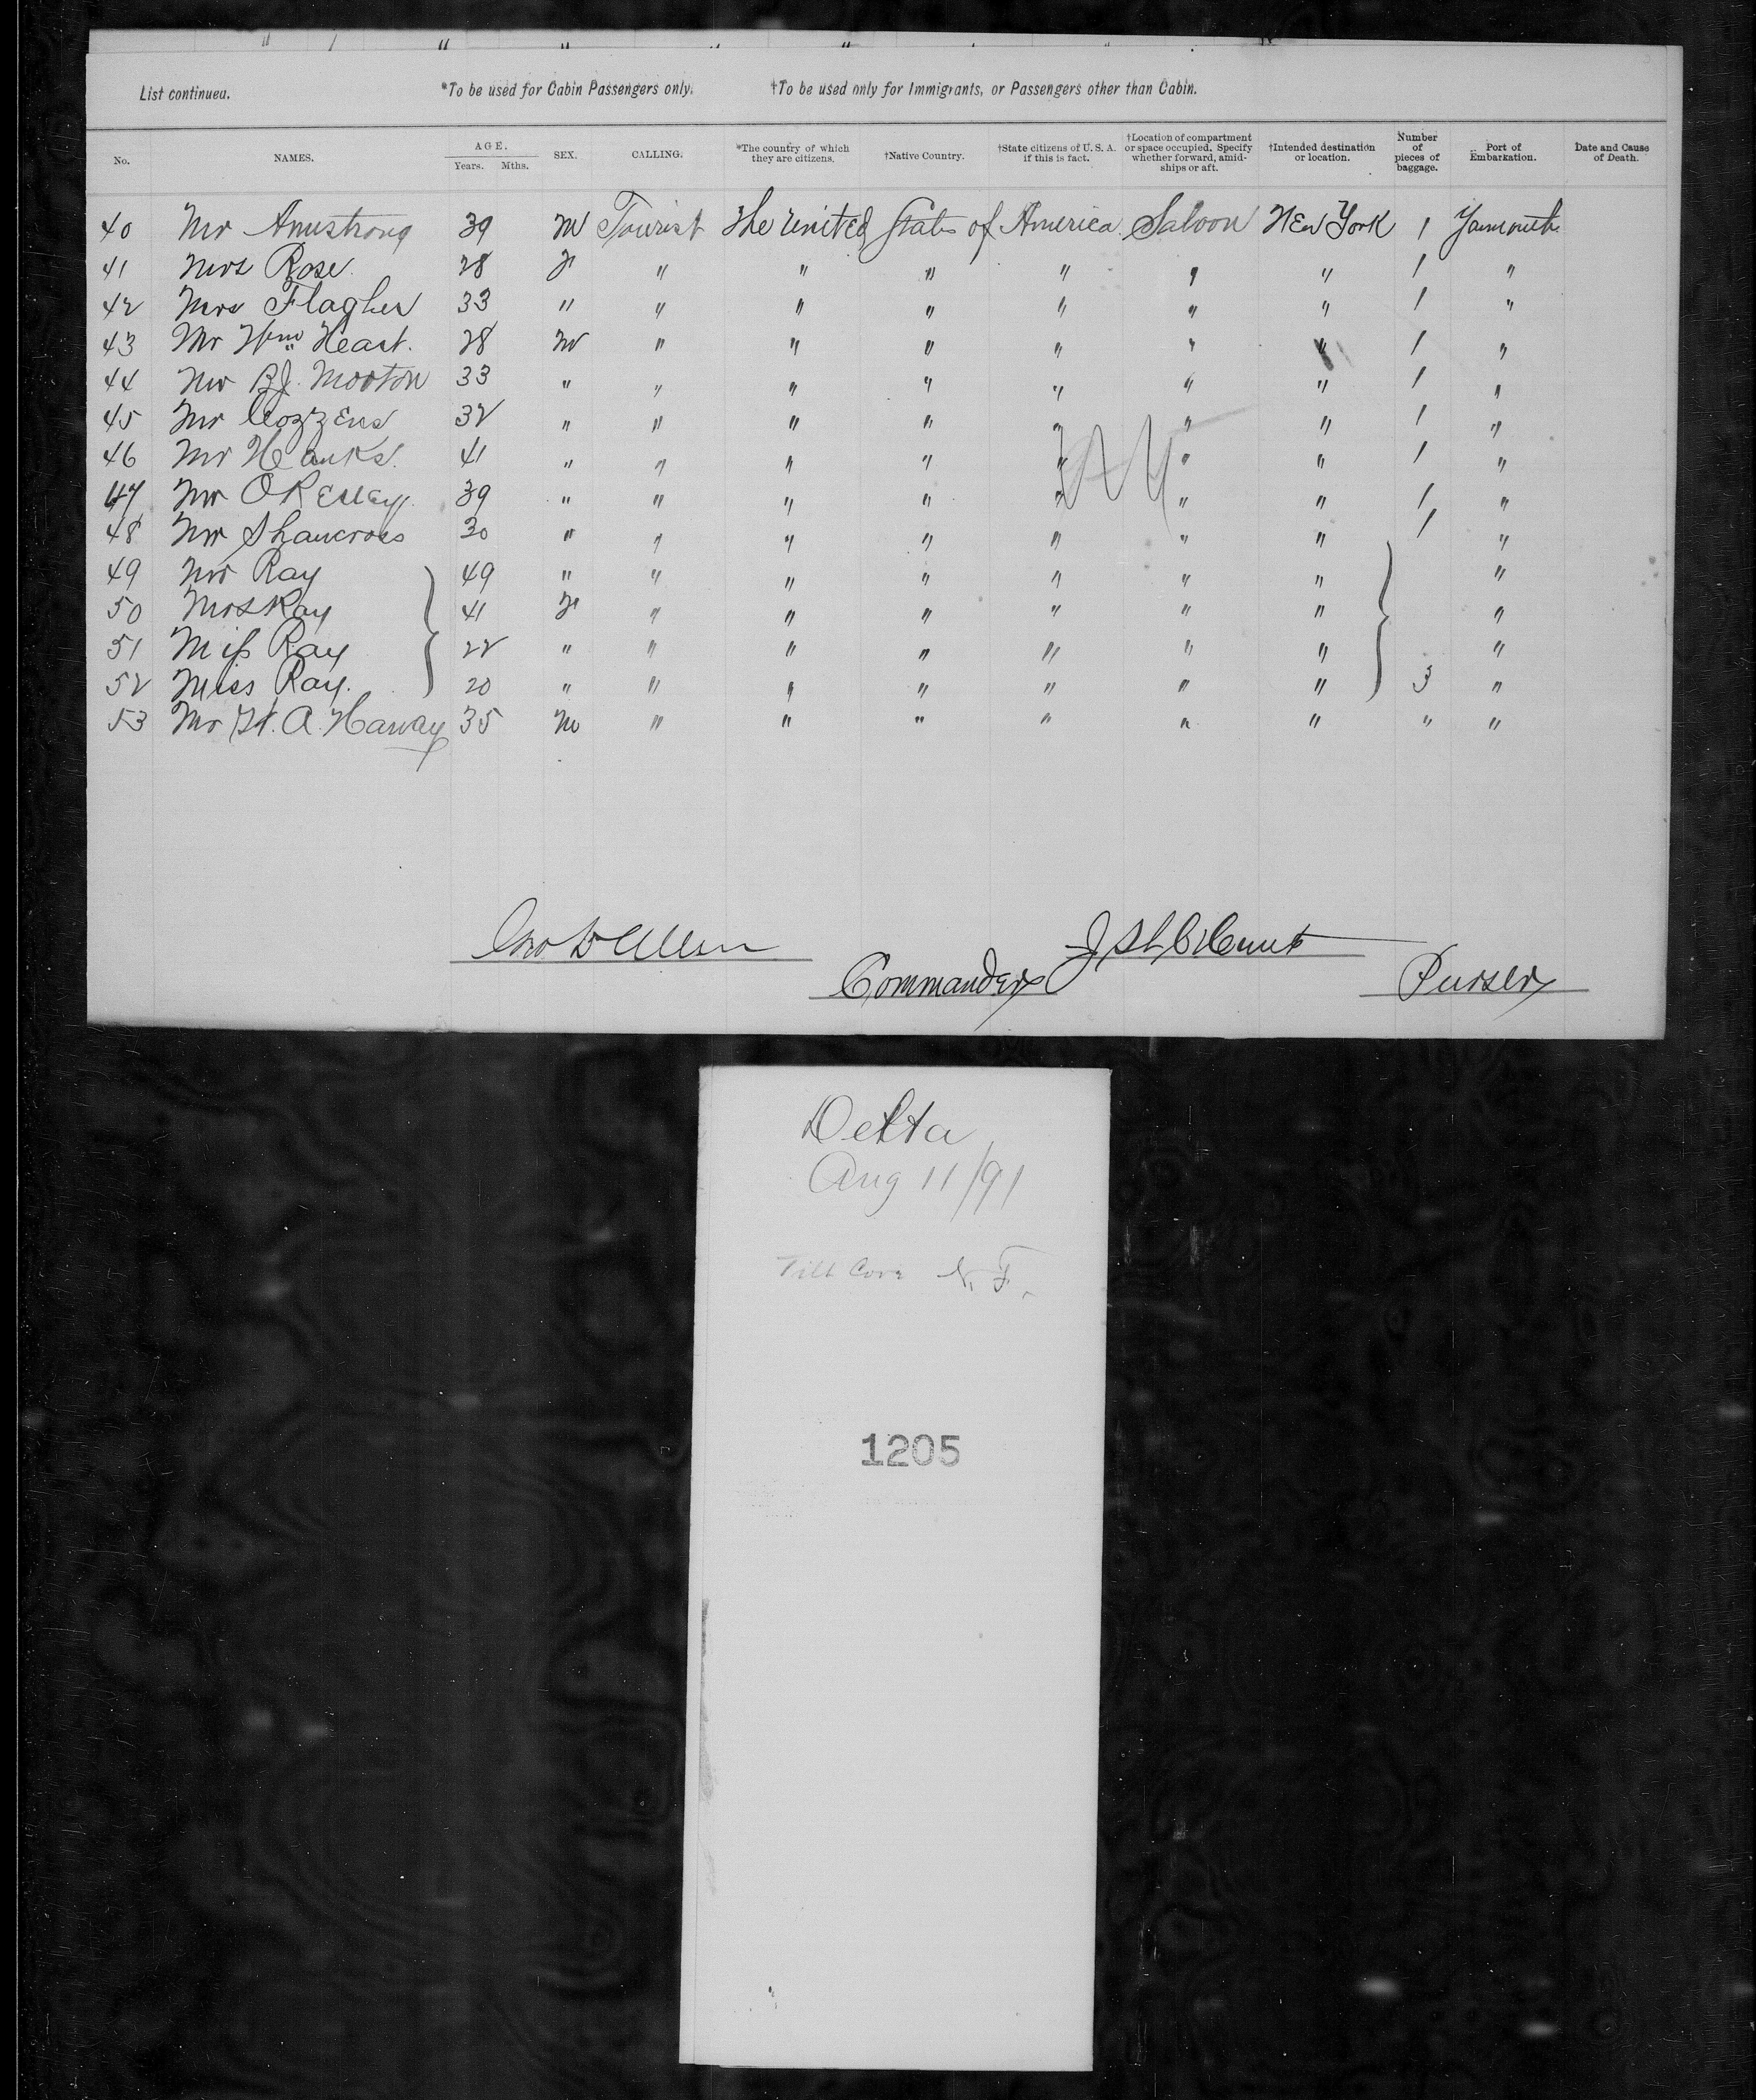 List continued. *To be used for Cabin Passengers only. †To be used only for Immigrants, or Passengers other than Cabin.
No. NAMES. AGE. Years. Mths. SEX. CALLING. *The country of which they are citizens. †Native Country. †State citizens of U. S. A. if this is fact. †Location of compartment or space occupied. Specify whether forward, amidships or aft. †Intended destination or location. Number of pieces of baggage. Port of Embarkation. Date and Cause of Death.
40 Mr Armstrong 39 M Tourist The United States of America Saloon New York 1 Yarmouth
41 Mrs Rose 28 F " " " " " " 1 "
42 Mrs Flagher 33 " " " " " " " 1 "
43 Mr Wm Heast. 28 M " " " " " " 1 "
44 Mr B.J. Mooton 33 " " " " " " " 1 "
45 Mr Cozzens 32 " " " " " " " 1 "
46 Mr Hanks. 41 " " " " " " " 1 "
47 Mr OKelley. 39 " " " " " " " 1 "
48 Mr Shaucross 30 " " " " " " " 1 "
49 Mr Ray 49 " " " " " " " "
50 Mrs Ray 41 F " " " " " " "
51 Miss Ray 22 " " " " " " " "
52 Miss Ray. 20 " " " " " " " 3 "
53 Mr H. A. Haway 35 M " " " " " " " "
Commander
Purser
Delta
Aug 11/91
Tilt Cove N. F.
1205